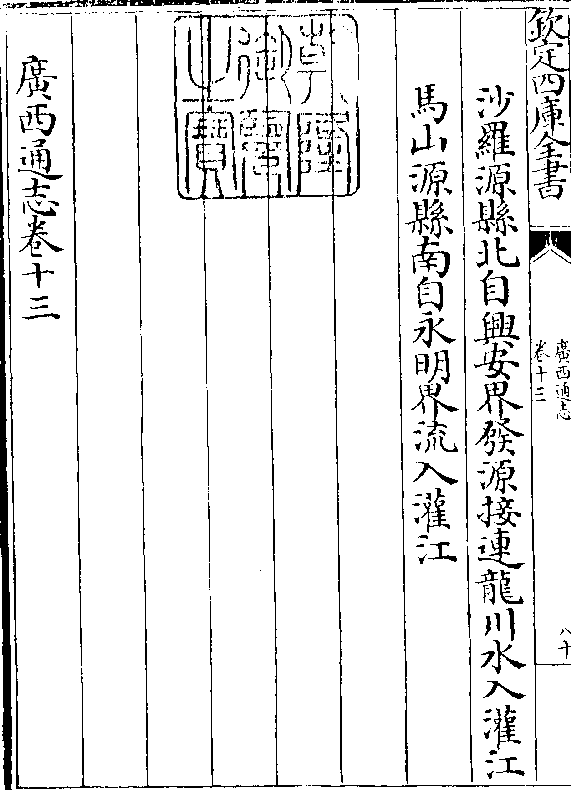 欽定四庫全書
廣西通志
卷十三
八十
沙羅源縣北自興安界發源接連龍川水入灌江
馬山源縣南自永明界流入灌江
乾隆
御覽
之寶
廣西通志卷十三